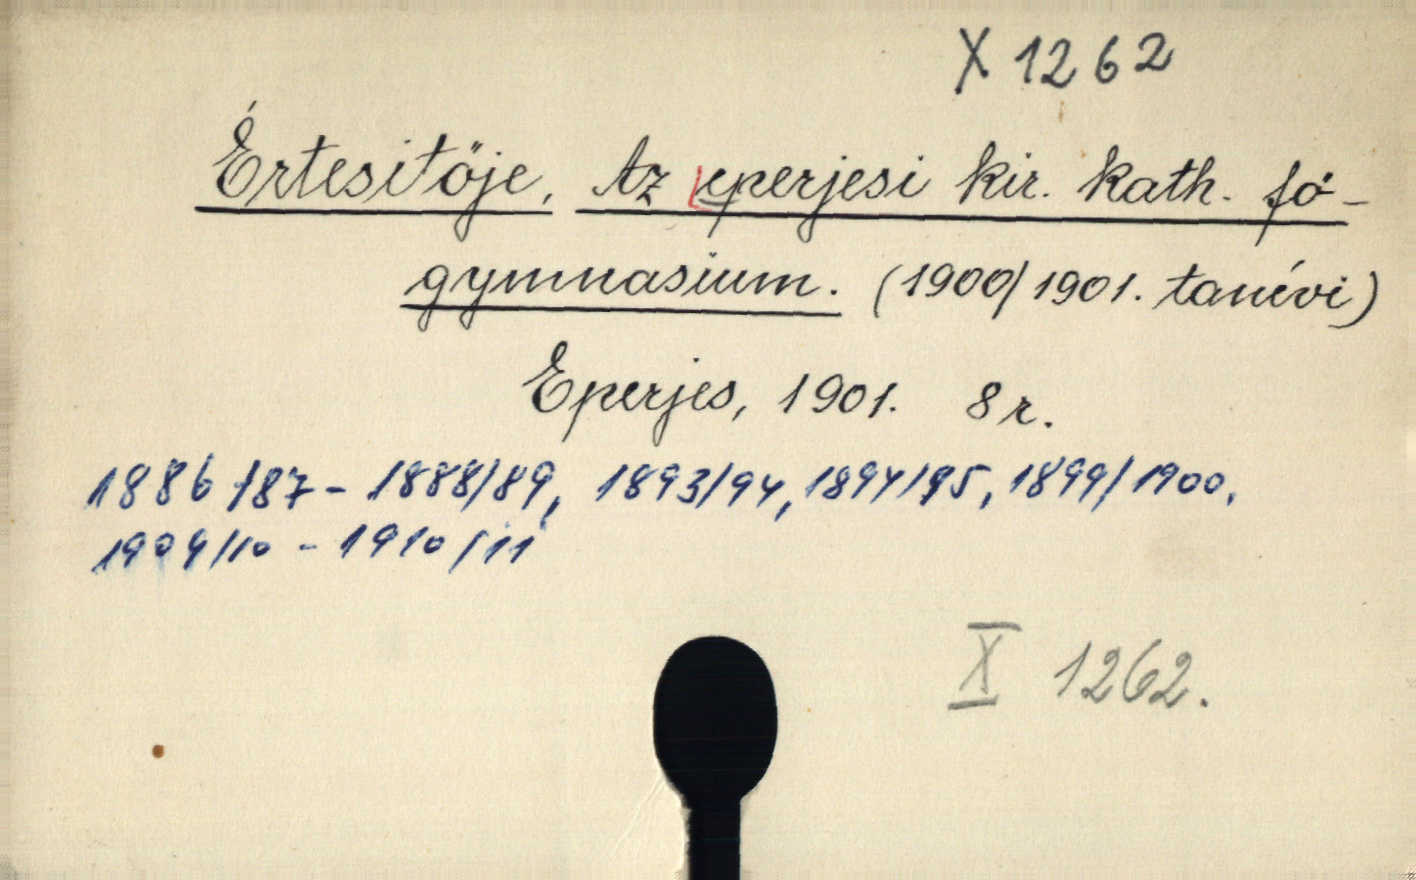 X 1262
Értesitője, Az eperjesi kir. kath. fő-
gymnasium. (1900/1901. tanévi)
Eperjes, 1901. 8 r.
1886/87 - 1888/89, 1893/94, 1894/95, 1899/1900,
1909/10 - 1910/11
X 1262.